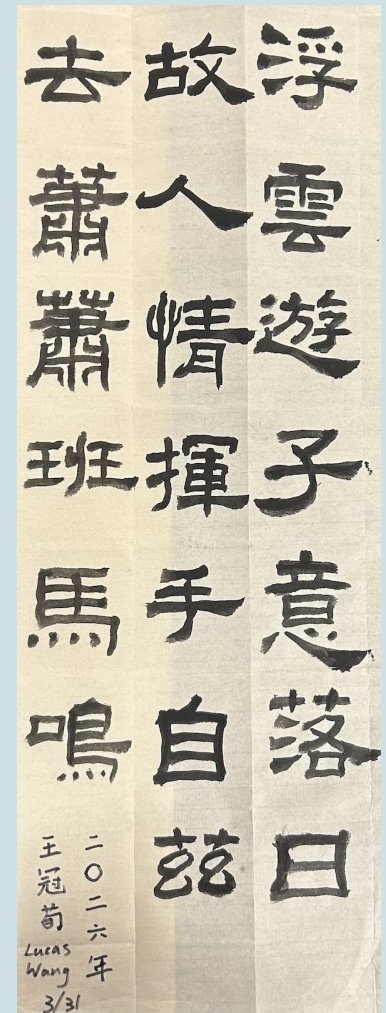 浮雲遊子意落日
故人情揮手自茲
去蕭蕭班馬鳴
二〇二六年
王冠荀
Lucas
Wang
3/31